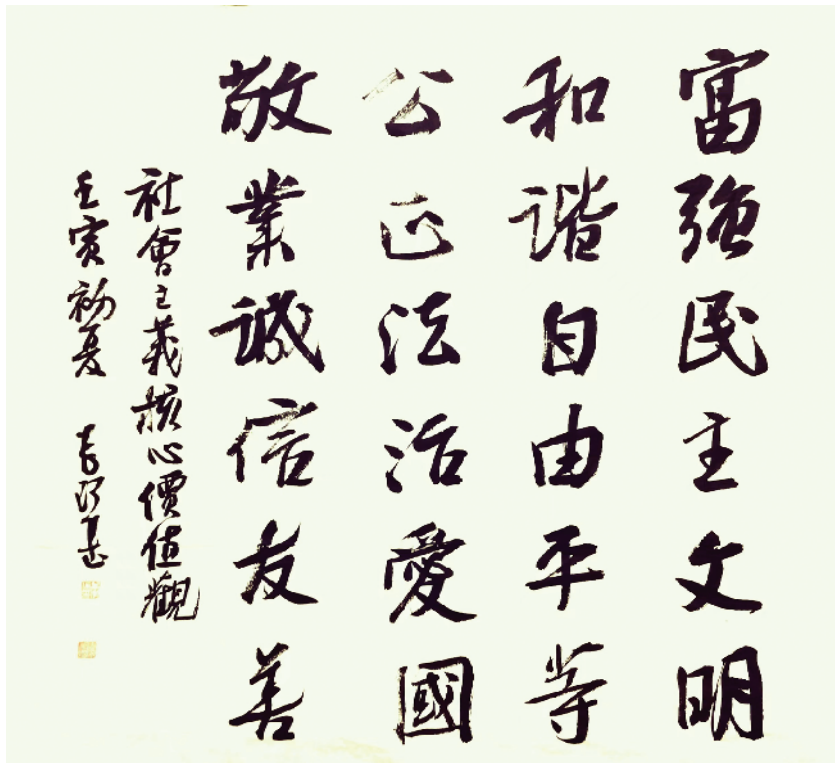 富強民主文明
和諧自由平等
公正法治愛國
敬業誠信友善
社會主義核心價值觀
壬寅初夏